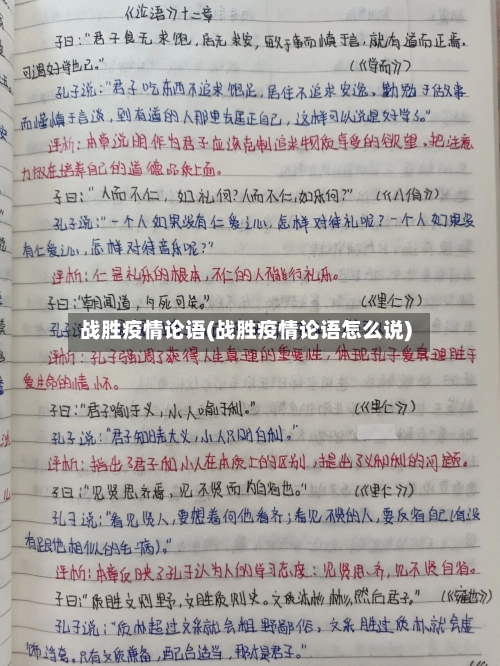 《论语》十二章
子曰："君子食无求饱,居无求安,敏于事而慎于言,就有道而正焉,
可谓好学也已。" (《学而》)
孔子说："君子吃东西不追求饱足,居住不追求安逸、勤勉于做事
而谨慎于言谈,到有道的人那里去匡正自己,这样可以说是好学了。"
评析：本章说明作为君子应该克制追求物质享受的欲望、把注意
力放在培养自己的道德品质上面。
子曰："人而不仁,如礼何?人而不仁,如乐何?" (《八佾》)
孔子说："一个人如果没有仁爱之心,怎样对待礼呢?一个人如果没
有仁爱之心,怎样对待音乐呢?"
评析：仁是礼乐的根本,不仁的人不能行礼乐。
子曰："朝闻道,夕死可矣。" (《里仁》)
战胜疫情论语(战胜疫情论语怎么说)
评析：孔子强调了获得人生真理的重要性,体现孔子爱真理胜于
爱生命的情怀。
子曰："君子喻于义,小人喻于利。" (《里仁》)
孔子说："君子知晓大义,小人只明白利。"
评析：指出了君子和小人在本质上的区别,提出了义和利的问题。
子曰："见贤思齐焉,见不贤而内自省也。" (《里仁》)
孔子说："看见贤人,要想着向他看齐；看见不贤的人,要反省自己(有没
有跟他相似的毛病)。"
评析：本章反映了孔子认为人的学习态度：见贤思齐,见不贤自省。
子曰："质胜文则野,文胜质则史。文质彬彬,然后君子。" (《雍也》)
孔子说："质朴超过文采就会粗野鄙俗,文采胜过质朴就会虚
饰 。只有文质兼备,配合适当,那才是君子。"